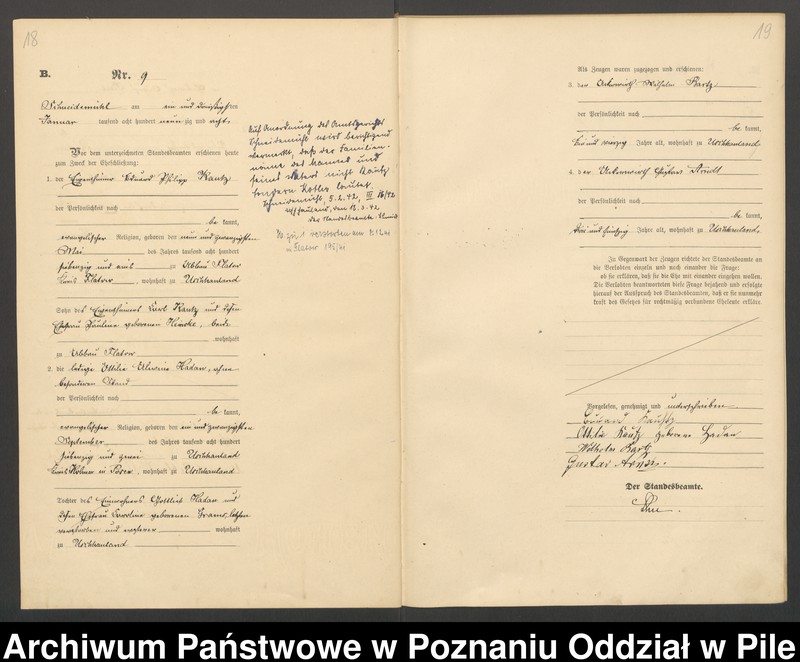 18
B.
Nr. 9
Schneidemühl am ein und dreißigsten
Januar tausend acht hundert neunzig und acht.
Vor dem unterzeichneten Standesbeamten erschienen heute
zum Zweck der Eheschließung:
1. der Eigenthümer Eduard Philipp Kautz
der Persönlichkeit nach
be kannt,
evangelischer Religion, geboren den neun und zwanzigsten
Mai des Jahres tausend acht hundert
siebenzig und eins zu Abbau Flatow
Kreis Flatow, wohnhaft zu Uschhauland
Sohn des Eigenthümers Karl Kautz und dessen
Ehefrau Pauline geborenen Heinke, beide
wohnhaft
zu Abbau Flatow
2. die ledige Ottilie Alwine Hadan, ohne
besonderen Stand
der Persönlichkeit nach
be kannt,
evangelischer Religion, geboren den ein und zwanzigsten
September des Jahres tausend acht hundert
siebenzig und zwei zu Uschhauland
Kreis Kolmar in Posen, wohnhaft zu Uschhauland
Tochter des Eigenthümers Gottlieb Hadan und
dessen Ehefrau Karoline geborenen
verstorben und ersterer wohnhaft
zu Uschhauland
Auf Anordnung des Amtsgerichts
Schneidemühl wird berichtigend
vermerkt, daß der Familien-
name des Mannes und
seines Vaters nicht Kautz
sondern lautet.
Schneidemühl, 5.2.42,
Der Standesbeamte
verstorben am
in Flatow
19
Als Zeugen waren zugezogen und erschienen:
3. der Ackerwirth Wilhelm Kartz
der Persönlichkeit nach
be kannt,
Jahre alt, wohnhaft zu Uschhauland
4. der Ackerwirth Gustav Arndt
der Persönlichkeit nach
be kannt,
Jahre alt, wohnhaft zu Uschhauland.
In Gegenwart der Zeugen richtete der Standesbeamte an
die Verlobten einzeln und nach einander die Frage:
ob sie erklären, daß sie die Ehe mit einander eingehen wollen.
Die Verlobten beantworteten diese Frage bejahend und erfolgte
hierauf der Ausspruch des Standesbeamten, daß er sie nunmehr
kraft des Gesetzes für rechtmäßig verbundene Eheleute erkläre.
Vorgelesen, genehmigt und unterschrieben
Eduard Kautz
Ottilie Kautz geborene Hadan
Wilhelm Kartz
Gustav Arndt.
Der Standesbeamte.
Archiwum Państwowe w Poznaniu Oddział w Pile